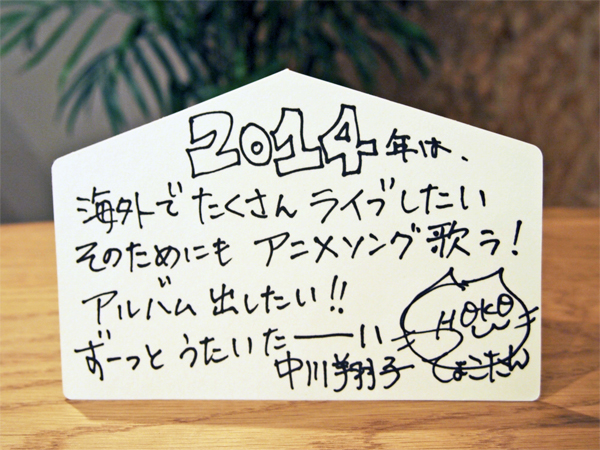 2014年は、
海外でたくさんライブしたい
そのためにも アニメソング歌う!
アルバム出したい!!
ずーっと うたいたーーい
中川翔子
SHOKO
しょこたん